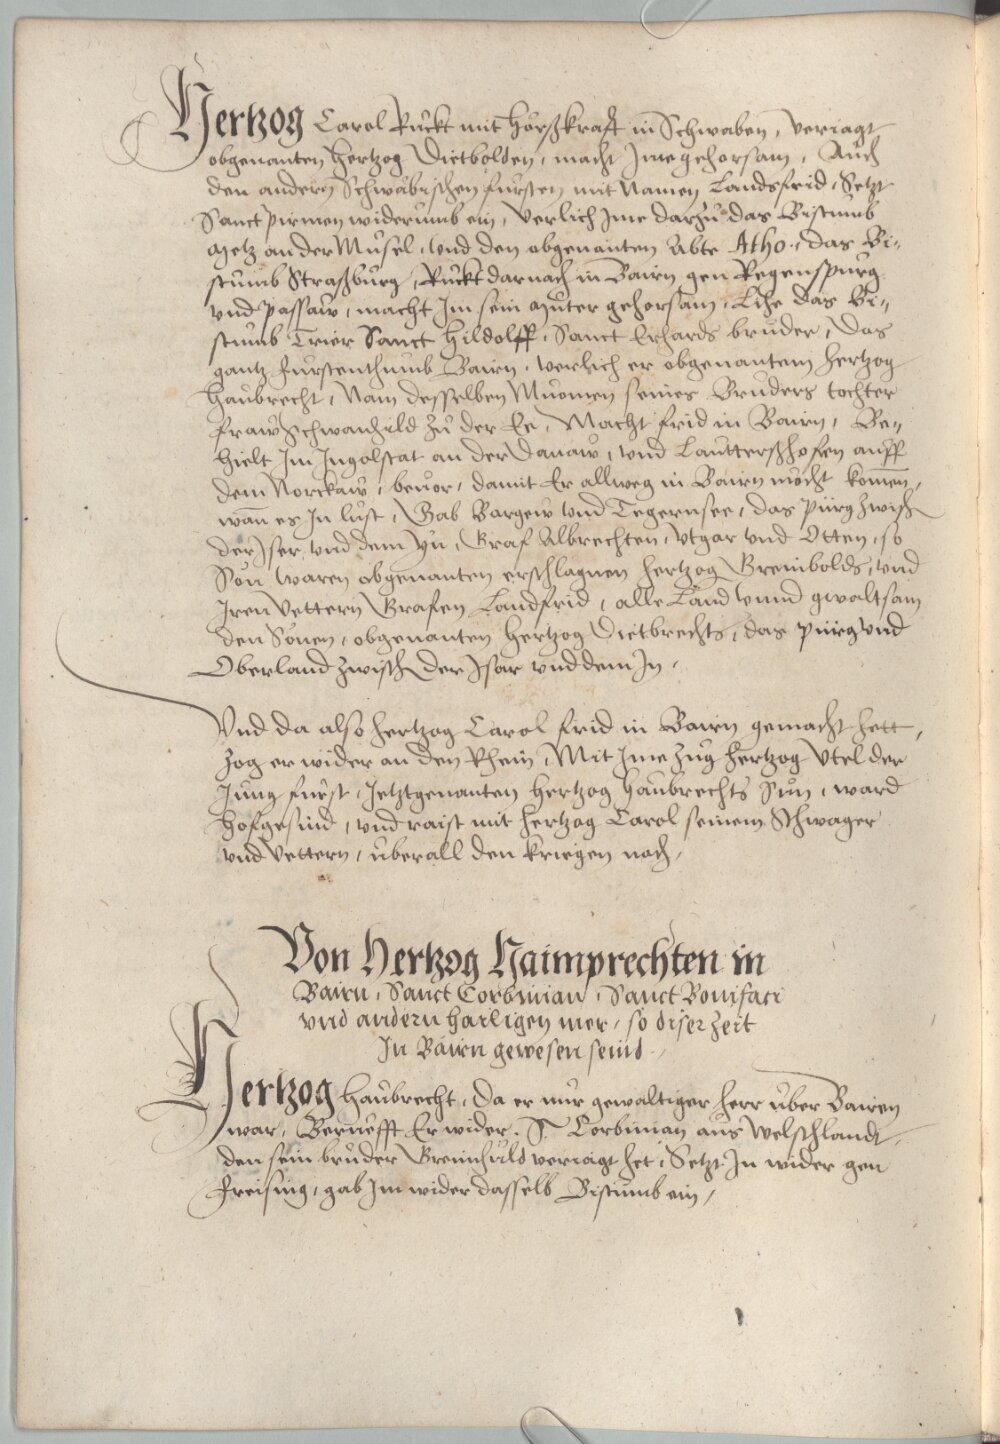 Hertzog Carol Ruckt mit hörßkrafft in Schwaben, Veriagt
obgenanten hertzog Dietbolden, macht Ime gehorsam, Auch
den andern Schwäbischen fürsten mit Namen Landsfrid, Setzt
Sanct Pirmen widerumb ein, Verlich Ime darzu das Bistumb
Metz an der Musel, und den obgenanten Abte Atho, das Bi-
stumb Straßburg, Ruckt darnach in Bairn gen Regenspurg
und Passaw, macht Im sein Muter gehorsam, Lihe das Bi-
stumb Trier Sanct Hildolff, Sanct Erhards bruder, Das
gantz fürstenthumb Bairn, verlich er obgenantem hertzog
haubrecht, Nam desselben Muomen seines Bruders tochter
fraw Schwanhild zu der Ee, Macht frid in Bairn, Be-
hielt Im Ingolstat an der Danaw, und Lautterßhofen auff
dem Norckaw, bevor, damit Er allweg in Bairn möcht komen,
wan es In lust, Gab Bargew und Tegernsee, das pürg zwisch
der Iser und dem Yn, Graf Albrechten, Utgar und Otten, so
Sön waren obgenanten erschlagnen hertzog Grembolds, und
Iren Vettern Grafen Landfrid, alle Land und gwaltsam
den Sönen, obgenanten hertzog Dietbrechts, das pürg und
Oberland zwisch der Isar und dem In,
Und da also hertzog Carol frid in Bairn gemacht hett,
Zog er wider an den Rhein, Mit Ime zug hertzog Utel der
Jung fürst, Jetztgenanten hertzog haubrechts Sun, ward
hofgesind, und raist mit hertzog Carol seinem Schwager
und Vettern, uberall den kriegen nach,
Von Hertzog Haimprechten in
Bairn, Sanct Corbinian, Sanct Bonifaci
und andern hailigen mer, so diser Zeit
In Bairn gewesen seind.
Hertzog haubrecht, Da er nur gewaltiger herr uber Bairen
war, Beruefft Er wider S. Corbinian aus Welschlandt,
den sein bruder Greimhild veriagt het, Setzt In wider gen
Freising, gab Im wider dasselb Bistumb ein,